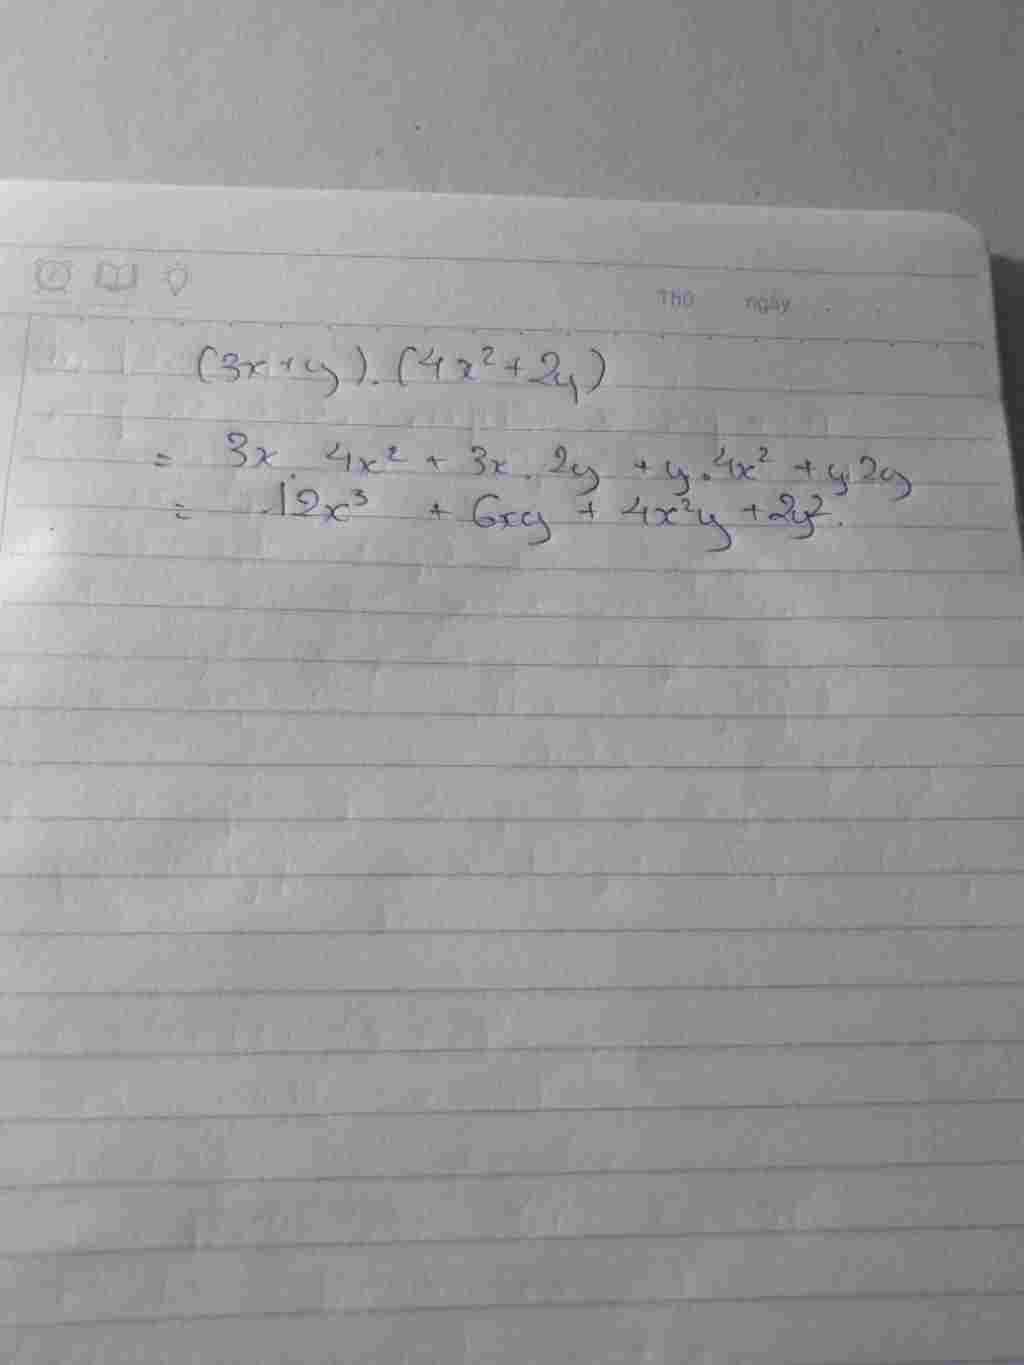 Thứ ngày
(3x+y).(4x²+2y)
= 3x. 4x² + 3x. 2y + y.4x² + y 2y
= 12x³ + 6xy + 4x²y + 2y².